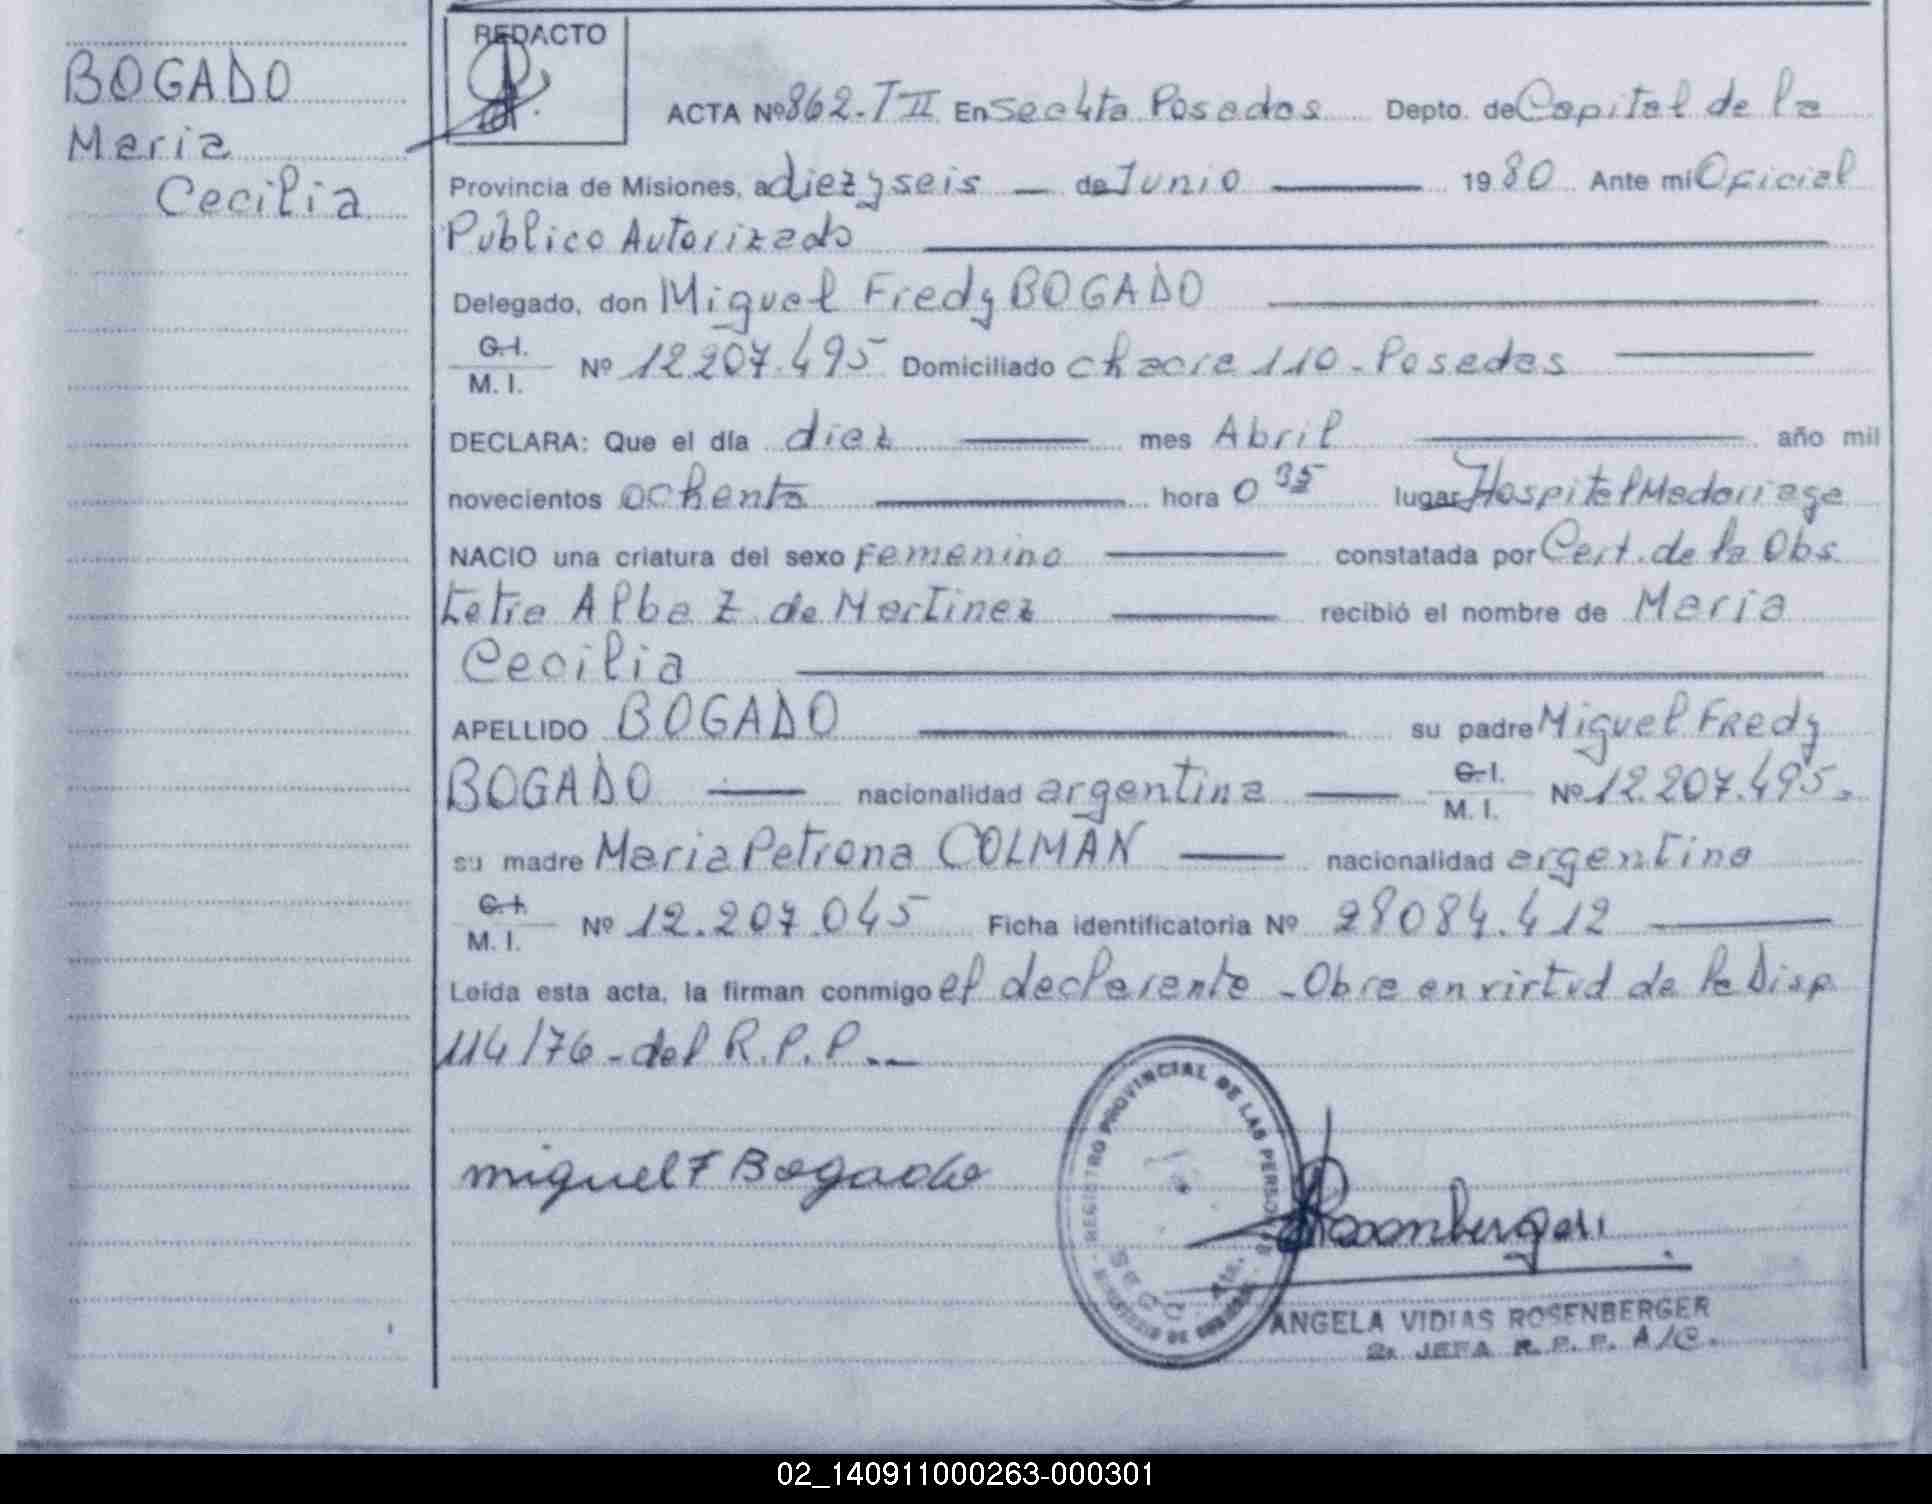 BOGADO
Maria
Cecilia
REDACTO
ACTA Nº 862-TII En Sec 4ta Posadas Depto. de Capital de la
Provincia de Misiones, a diez y seis — de Junio — 1980 Ante mi Oficial
Público Autorizado
Delegado, don Miguel Fredy BOGADO
C.I. M.I. Nº 12.207.495 Domiciliado chacra 110 - Posadas
DECLARA: Que el día diez — mes Abril — año mil
novecientos ochenta — hora 0 35 lugar Hospital Madariaga
NACIO una criatura del sexo femenino — constatada por Cert. de la Obs
tetra Alba Z. de Martinez — recibió el nombre de Maria
Cecilia
APELLIDO BOGADO — su padre Miguel Fredy
BOGADO — nacionalidad argentina — C.I. M.I. Nº 12.207.495.
su madre Maria Petrona COLMAN — nacionalidad argentina
C.I. M.I. Nº 12.207.045 Ficha identificatoria Nº 28084.412
Leída esta acta, la firman conmigo el declarante - Obra en virtud de la Disp
114/76 - del R.P.P.
REGISTRO PROVINCIAL DE LAS PERSONAS
miguel F Bogado
Rosenberger
ANGELA VIDIAS ROSENBERGER
2a JEFA R.P.P. A/C.
02_140911000263-000301